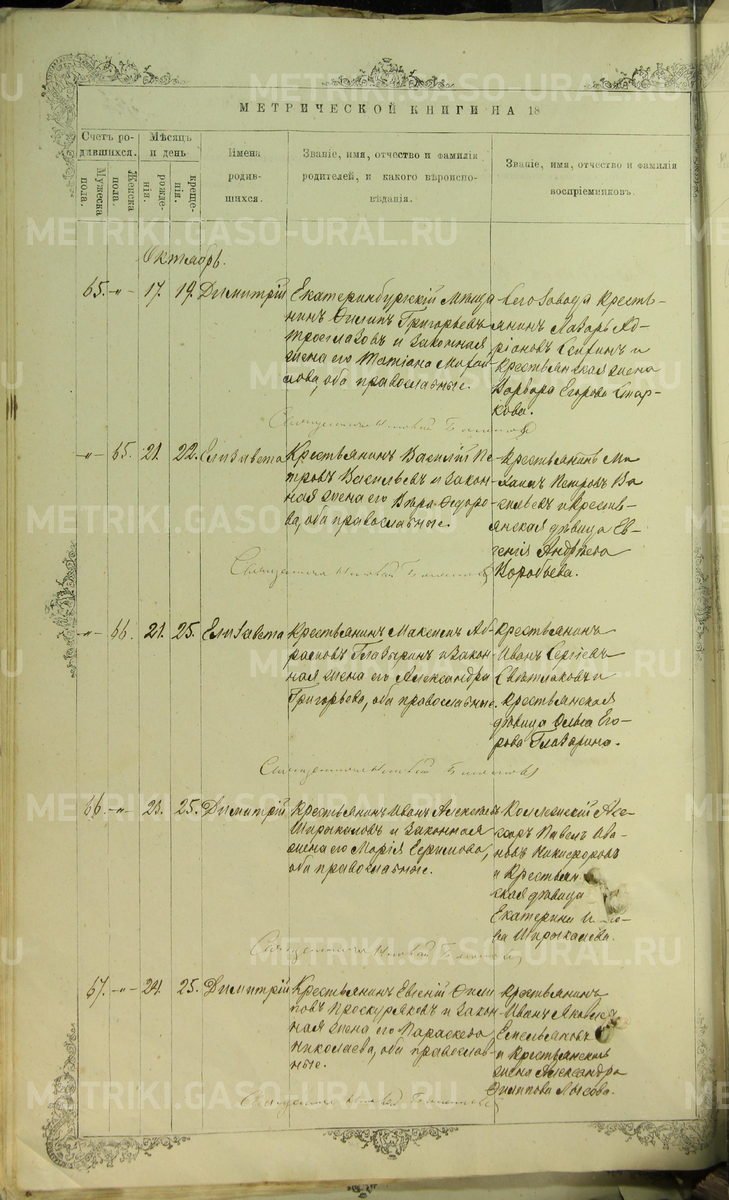 МЕТРИЧЕСКОЙ КНИГИ НА 18
Счетъ ро-
дившихся.
Мужеска
пола.
Женска
пола.
Мѣсяцъ
и день
рожде-
нія.
креще-
нія.
Имена
родив-
шихся.
Званіе, имя, отчество и фамилія
родителей, и какого вѣроиспо-
вѣданія.
Званіе, имя, отчество и фамилія
воспріемниковъ.
Октябрь.
65. -"- 17. 19. Димитрій
Екатеринбургскій Мѣща
нинъ Филипъ Григорьевъ
и законная
жена его Татіана
оба православные.
Сего завода Кресть-
янинъ Лазарь Ад-
ріановъ и
Крестьянская жена
Варвара Егорова Стар-
кова.
Священникъ
-"- 65. 21. 22. Елизавета
Крестьянинъ Василій Пе
тровъ Васильевъ и закон-
ная жена его Вѣра Ѳедоро-
ва, оба православные.
Крестьянинъ Ми
хаилъ Петровъ Ва
сильевъ и Кресть-
янская дѣвица Ев-
генія Андреева
Воробьева.
Священникъ
-"- 66. 21. 25. Елизавета
Крестьянинъ Максимъ Аб-
рамовъ Глазыринъ и закон-
ная жена его Александра
Григорьева, оба православные.
Крестьянинъ
Иванъ Сергѣевъ
Свѣтлаковъ и
Крестьянская
дѣвица Ольга Его-
рова Глазырина.
Священникъ
66 -"- 23. 25. Димитрій
Крестьянинъ Иванъ Алексѣевъ
Ширыкаловъ и законная
жена его Марія Ефимова,
оба православные.
Коллежскій Асе-
соръ Павелъ Ива-
новъ Никифоровъ
и Крестьян
ская дѣвица
Екатерина
ва Ширыкалова.
Священникъ
67. -"- 24. 25. Димитрій
Крестьянинъ Евгеній Фили
повъ Проскуряковъ и закон-
ная жена его Параскева
Николаева, оба православ-
ные.
Крестьянинъ
Иванъ Яковлев
Емельяновъ
и Крестьянская
жена Александра
Филиппова
Священникъ
METRIKI.GASO-URAL.RU